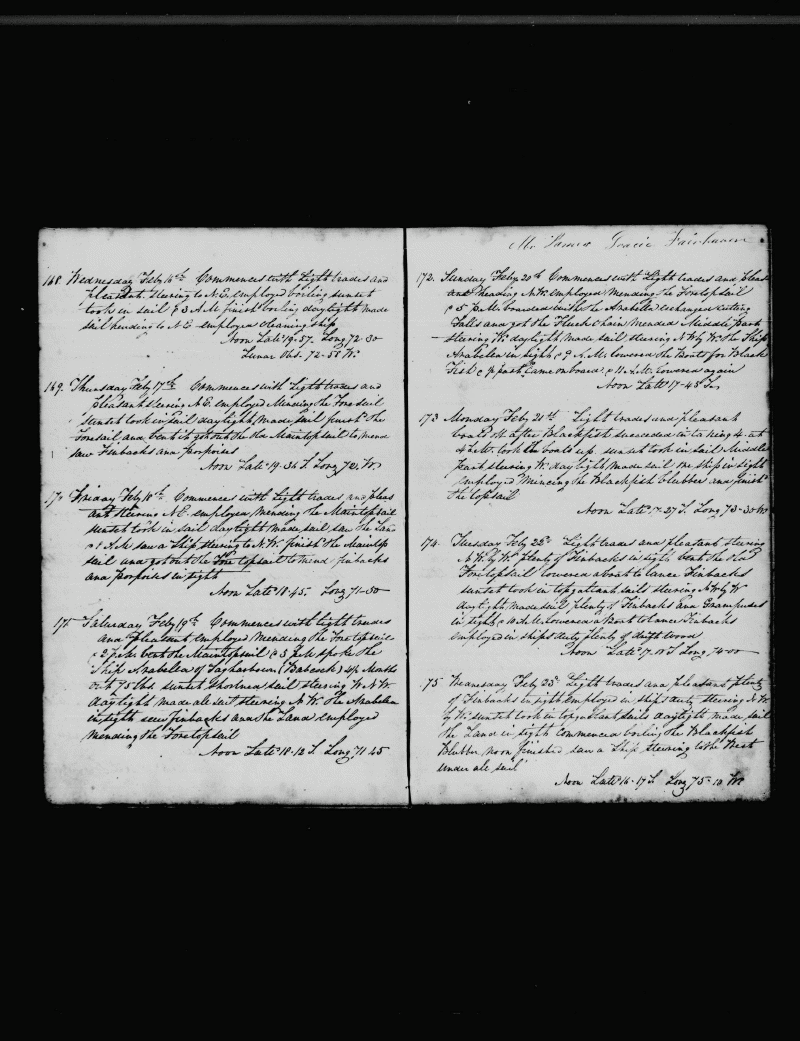 168 Wednesday Feby 16th Commences with Light trades and
pleasant steering to N.E. employed boiling sunset
took in sail @ 3 A.M. finish boiling daylight made
sail heading to N E employed cleaning ship
Noon Latd 19.57. Long 72-30
Lunar Obs. 72-58 W.
169. Thursday Feby 17th Commences with Light trades and
Pleasant steering N.E. employed Mending the Foresail
sunset took in sail daylight made sail finish the
Foresail and bent it got out the Old Maintopsail to mend
saw Finbacks and porpoises
Noon Latd 19-36 S. Long 72. W.
170 Friday Feby 18th Commences with Light trades and pleas
ant steering N.E. employed mending the Maintopsail
sunset took in sail daylight made sail saw the Land
@ A.M saw a Ship steering to N.W. finish the Maintop
sail and got out the Fore topsail to mend finbacks
and porpoises in sight
Noon Latd 18-45 Long 71-50
171 Saturday Feby 19th Commences with light trades
and pleasant employed Mending the Foretopsail
@ 2 P.M. bent the Maintopsail @ 3 P.M spoke the
Ship Arabella of Sagharbour (Babcock) Months
out 75 bbls. sunset shortened sail steering W.N.W.
daylight made all sail steering N.W. the Arabella
in sight seen finbacks and the Land employed
mending the Foretopsail
Noon Latd 18-12 S. Long 71-45
Mr James Gracie Fairhaven
172. Sunday Feby 20th Commences with Light trades and pleas
ant heading N.W. employed Mending the Foretopsail
@ 5 P.M. boarded with the Arabella exchanged cutting
Falls and got the Fluck chain mended Middle part
steering W. daylight made sail steering N.W by W. the Ship
Arabella in sight @ 9 A.M. lowered the Boats for Black
Fish @ past came onboard @ 11 A.M. lowered again
Noon Latd 17-45 S.
173 Monday Feby 21st Light trades and pleasant
boats off after Blackfish succeeded in taking 4. at
P.M. took the boats up. sunset took in sail Middle
part steering W. daylight made sail the ship in sight
employed Mincing the Blackfish blubber and finish
the topsail
Noon Latd 17-27 S. Long 73-30 W
174. Tuesday Feby 22d Light trades and pleasant steering
N.W. by W. plenty of Finbacks in sight bent the old
Foretopsail lowered a boat to lance Finbacks
sunset took in topgallant sails steering N.W by W
daylight made sail plenty of Finbacks and Grampuses
in sight @ 10 A.M. Lowered a Boat to lance Finbacks
employed in ships duty plenty of drift wood
Noon Latd 17. S Long 74-00
75 Wednesday Feby 23d Light trades and pleasant plenty
of Finbacks in sight employed in ships duty steering N.W.
by W. sunset took in topgallant sails daylight made sail
the Land in sight commenced boiling the Blackfish
Blubber noon finished saw a Ship steering to the West
under all sail
Noon Latd 16-17 S Long 75-10 W.